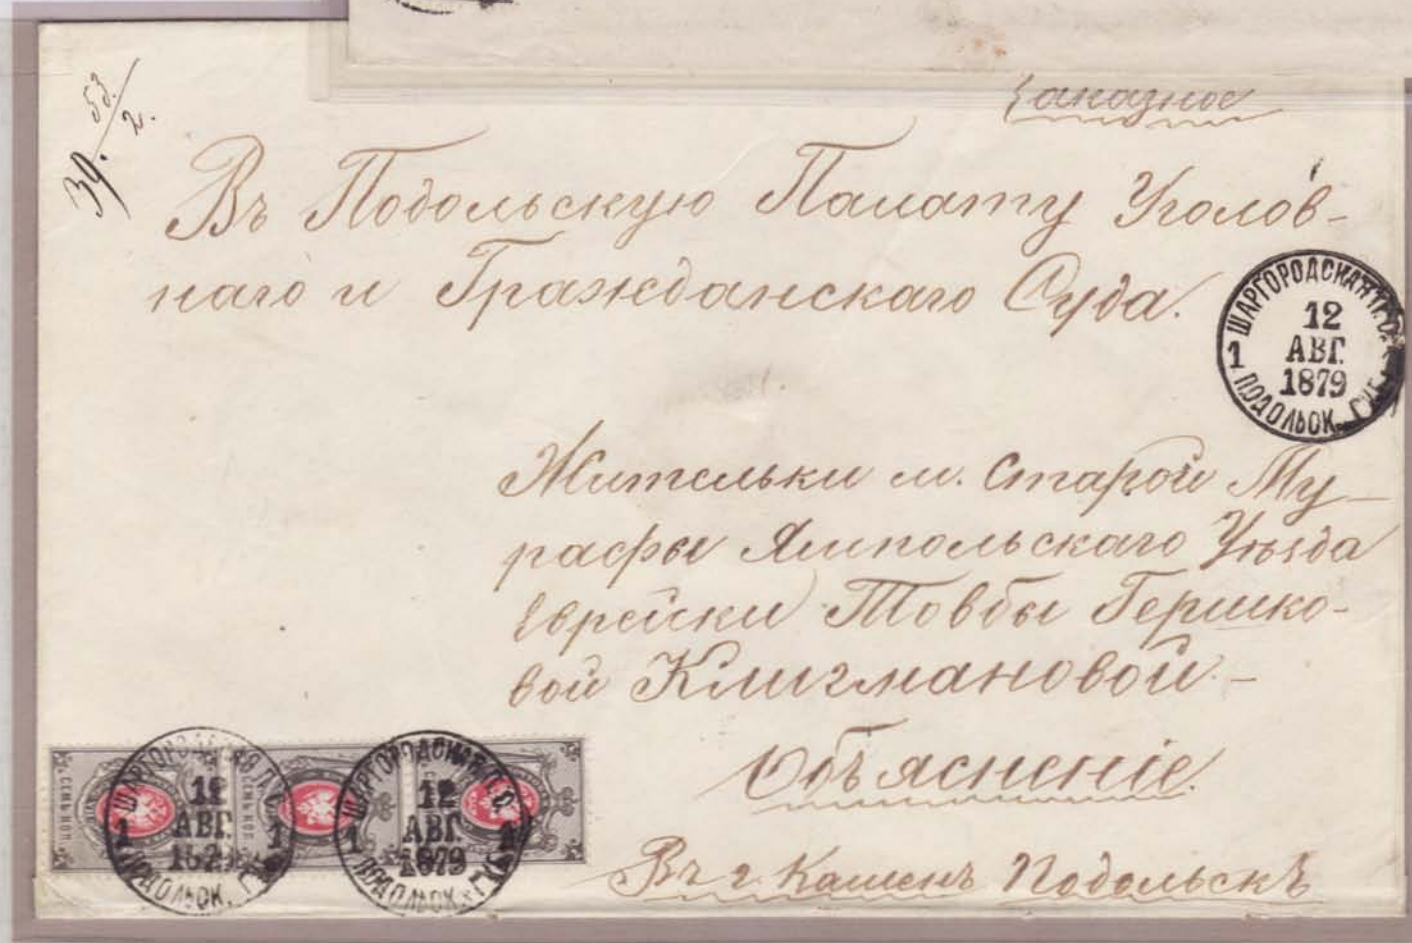 Заказное
39. 53/2.
Въ Подольскую Палату Уголов-
наго и Гражданскаго Суда.
ШАРГОРОДСКАЯ П.О.
12
АВГ.
1879
1
ПОДОЛЬСК. ГУБ.
Жительки м. Старой Му-
рафы Ямпольскаго Уѣзда
Еврейки Товбы Гершко-
вой Клигмановой -
Объясненіе.
Въ г. Каменъ Подольскъ
СЕМЬ КОП.
СЕМЬ КОП.
ШАРГОРОДСКАЯ П.О.
12
АВГ.
1879
1
1
ПОДОЛЬСК. ГУБ.
ШАРГОРОДСКАЯ П.О.
12
АВГ.
1879
1
1
ПОДОЛЬСК. ГУБ.